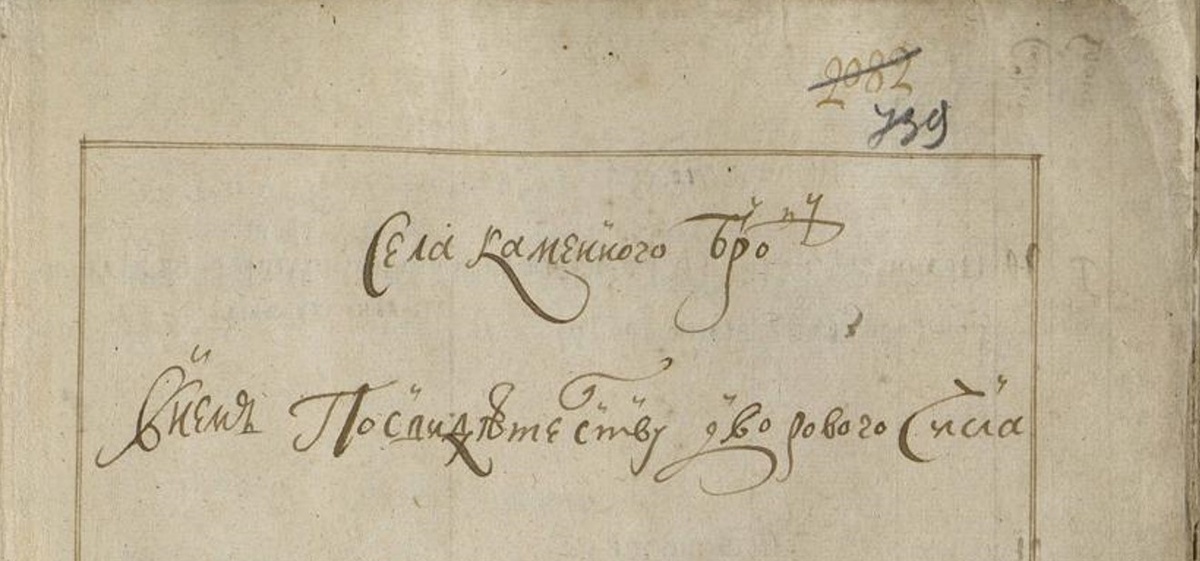 2082
739
Села каменного Броду
Внемъ По свидѣтелству дворового Списка